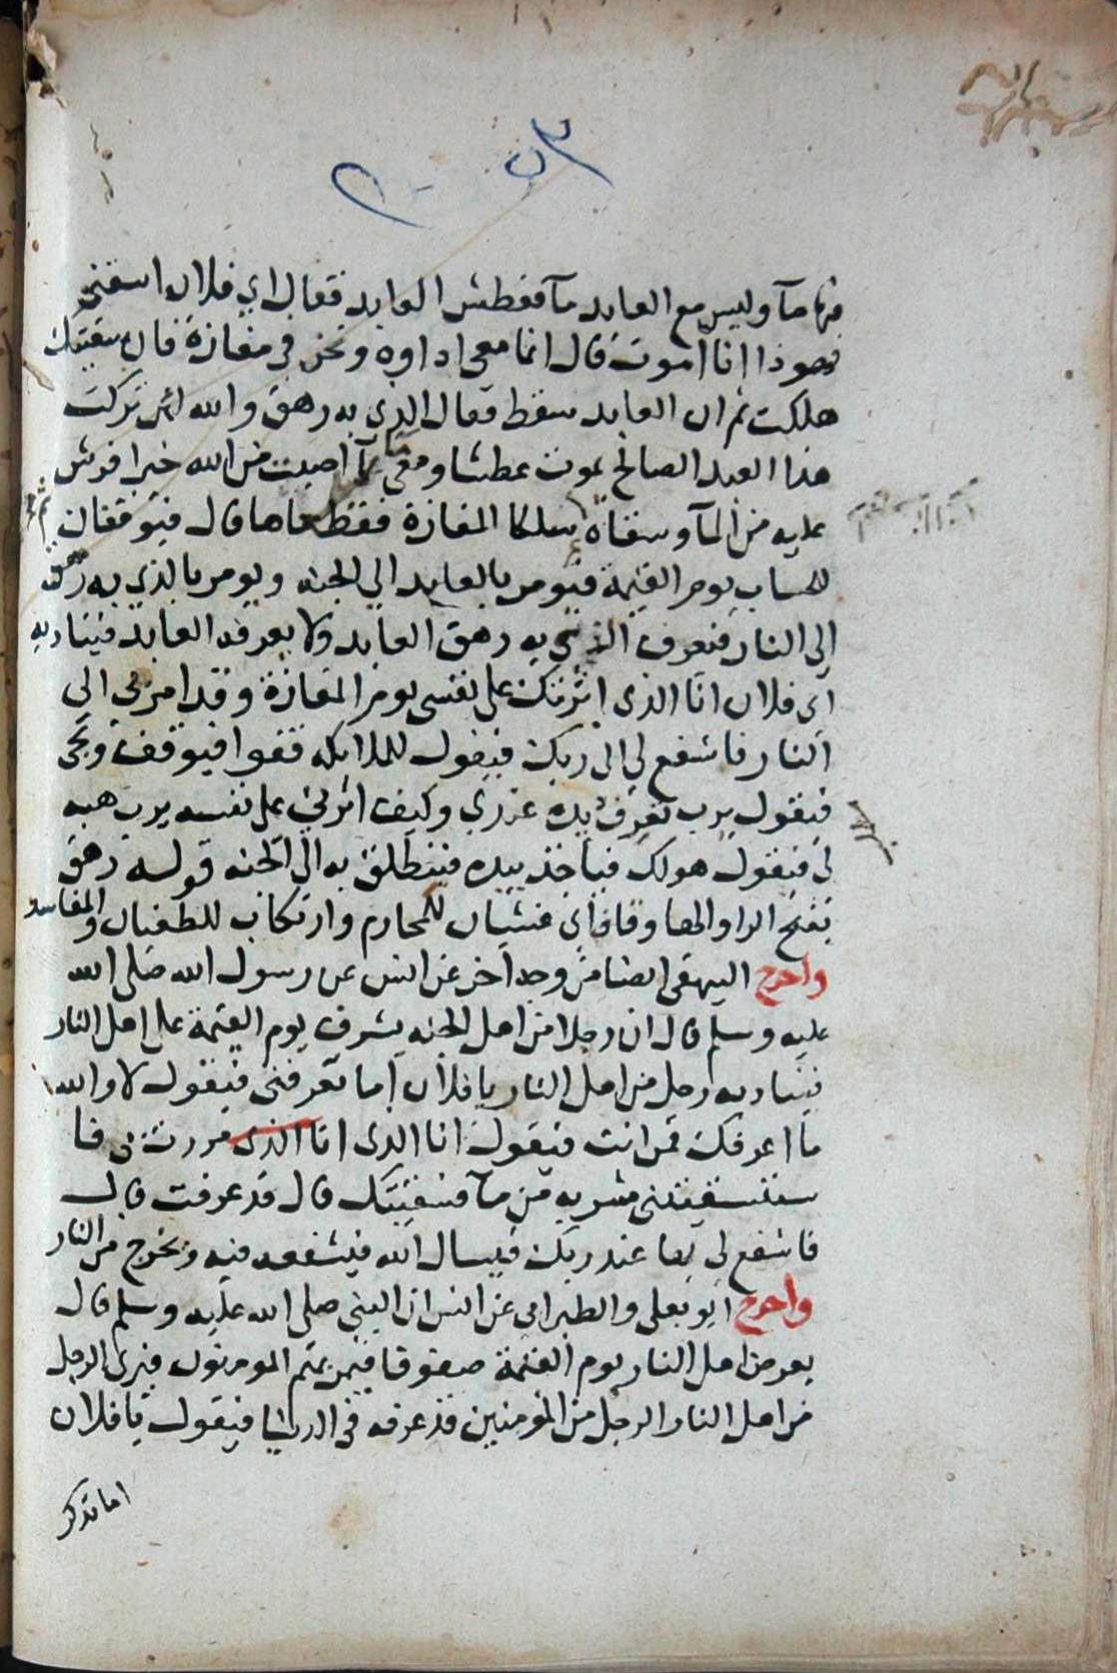 فيها مآ وليس مع العابد مآ فعطش العابد فقال اي فلان اسقني
فهوذا انا أموت قال انما معي اداوه ونحن في مفازة فان سقيتك
هلكت ثم ان العابد سقط فقال الذي به رهق والله لئن تركت
هذا العبد الصالح يموت عطشا ومعي مآ لا اصبت من الله خيرا فرش
عليه من المآ وسقاه ثم سلكا المفازة فقطعاها قال فيوقفان
للحساب يوم القيمة فيومر بالعابد الي الجنه ويومر بالذي به رهق
إلي النار فيعرف الذي به رهق العابد ولا يعرفه العابد فيناديه
اي فلان انا الذى اثرتك على نفسى يوم المفازة وقد امر بي الى
النار فاشفع لي الى ربك فيقول للملايكه قفوا فيوقف ويجى
فيقول يرب تعرف يده عندي وكيف اثرني على نفسه يرب هبه
لي فيقول هو لك فياخذ بيده فينطلق به الى الجنه قوله رهق
بفتح الرا والها وقاف أي غشيان للمحارم وارتكاب للطغيان والمفاسد
واخرج البيهقى ايضا من وجه اخر عن انس عن رسول الله صلى الله
عليه وسلم قال ان رجلا من اهل الجنه يشرف يوم القيمة على اهل النار
فيناديه رجل من اهل النار يا فلان اما تعرفنى فيقول لا والله
ما اعرفك فمن انت فيقول انا الذى انا الذى مررت بي فا
ستسقيتنى شربه من مآ فسقيتك قال قد عرفت قال
فاشفع لي بها عند ربك فيسال الله فيشفعه فيه ويخرج من النار
واخرج ابو يعلى والطبرانى عن انس ان النبى صلى الله عليه وسلم قال
يعرض اهل النار يوم القيمة صفوفا فيمر بهم المومنون فيرى الرجل
من اهل النار الرجل من المؤمنين قد عرفه في الدنيا فيقول يا فلان
اما تذكر